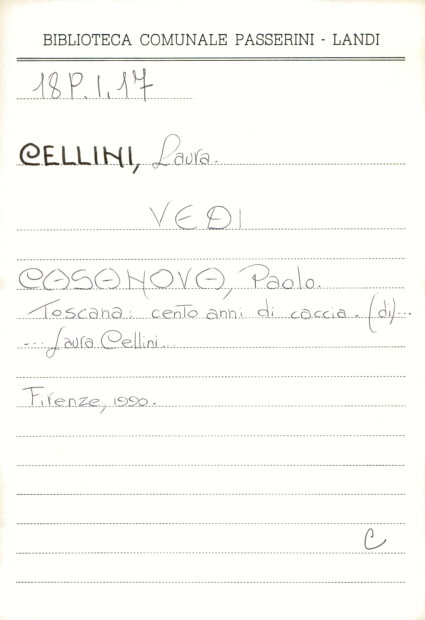 BIBLIOTECA COMUNALE PASSERINI - LANDI
18P.I.17
CELLINI, Laura.
VEDI
CASANOVA, Paolo.
Toscana: cento anni di caccia. (di)...
... Laura Cellini...
Firenze, 1990.
C